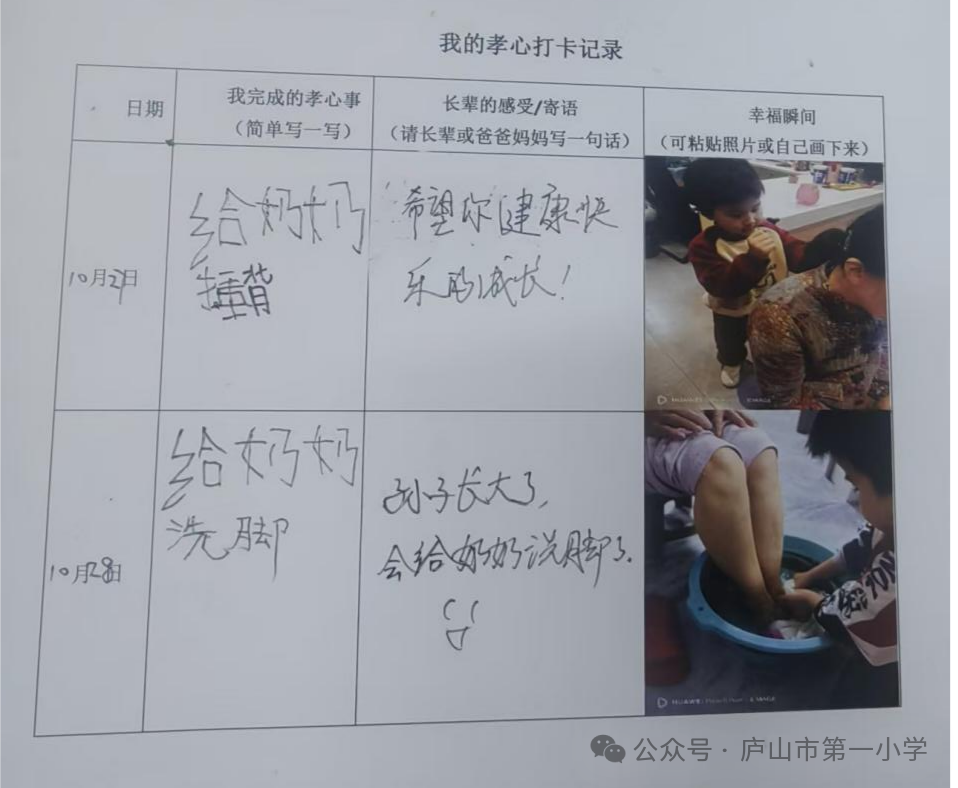 我的孝心打卡记录
日期
我完成的孝心事
（简单写一写）
长辈的感受/寄语
（请长辈或爸爸妈妈写一句话）
幸福瞬间
（可粘贴照片或自己画下来）
给奶奶
捶背
希望你健康快
乐的成长！
10月28日
给奶奶
洗脚
孙子长大了，
会给奶奶洗脚了.
公众号·庐山市第一小学